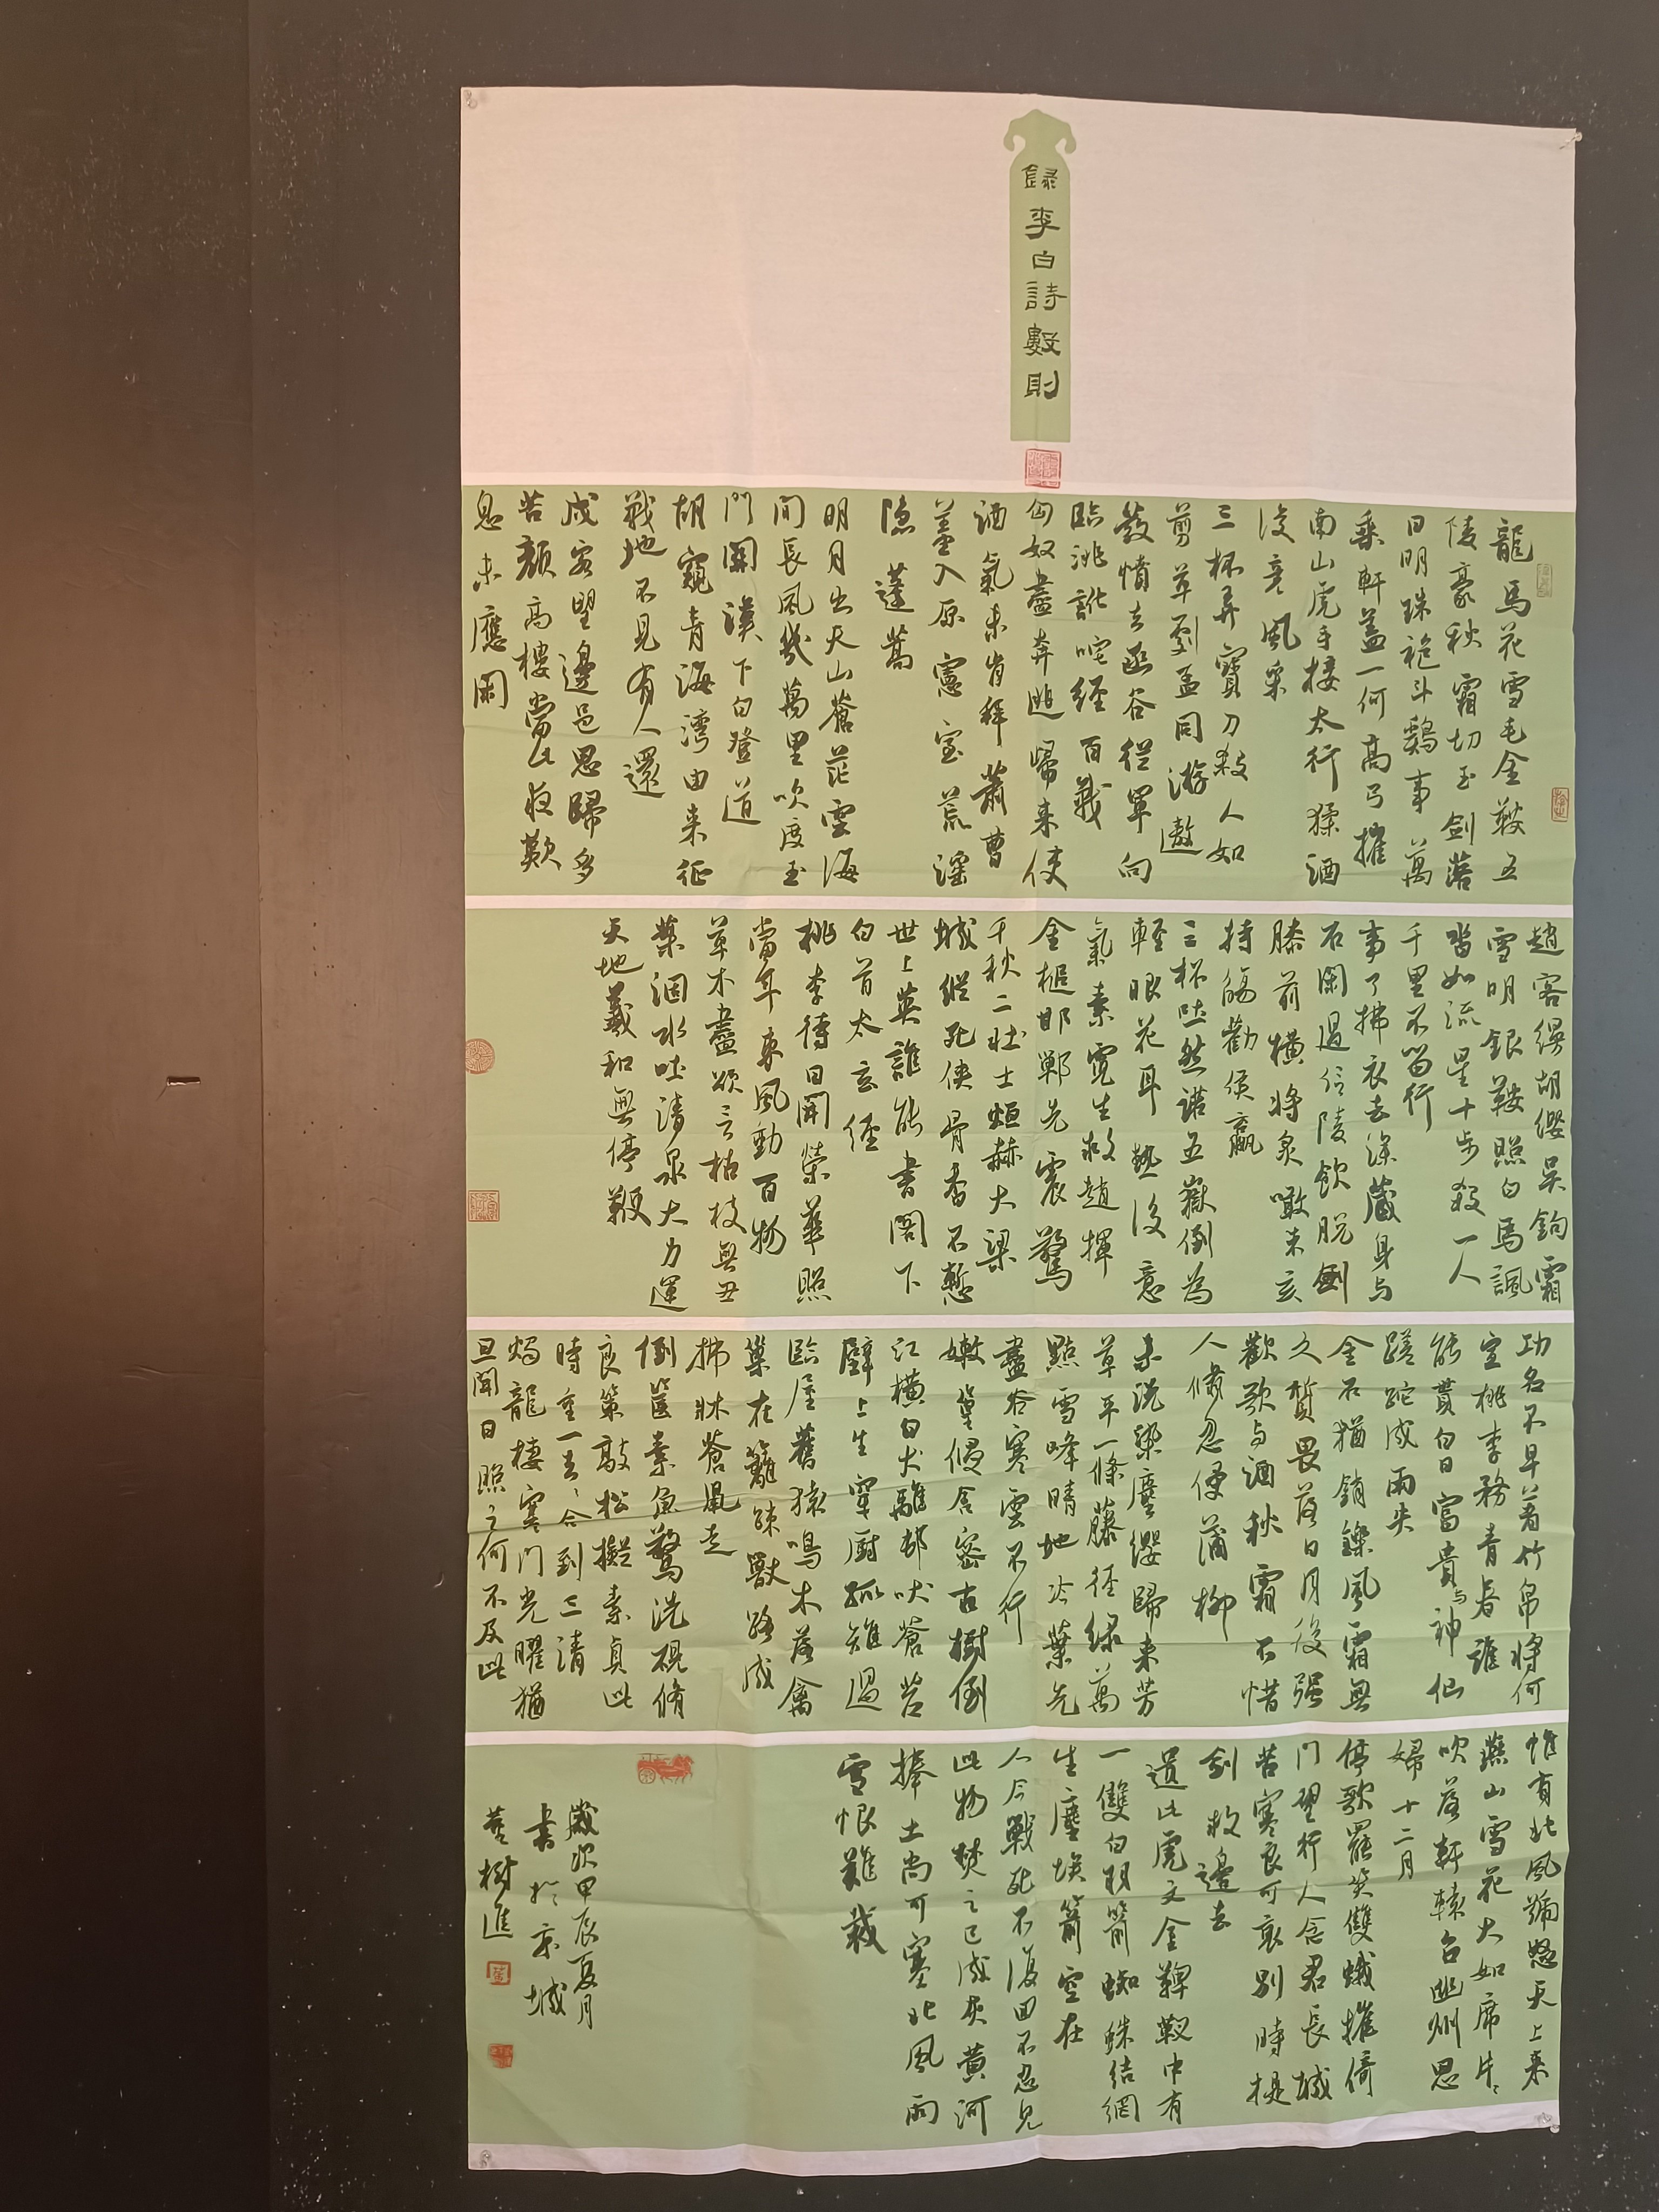 錄李白詩數則
龍馬花雪毛金鞍五
陵豪秋霜切玉劍落
日明珠袍斗鷄事萬
乘軒蓋一何高弓摧
南山虎手接太行猱酒
後竞風采
三杯弄寶刀殺人如
剪草劇孟同游遨
發憤去函谷從軍向
臨洮詫咤經百戰
匈奴盡奔逃歸来使
酒氣未肯拜蕭曹
羞入原憲室荒淫
隐蓬蒿
明月出天山蒼茫雲海
間長風幾萬里吹度玉
門關漢下白登道
胡窺青海湾由来征
戰地不見有人還
戍客望邊邑思歸多
苦顏高樓當此夜歎
息未應閑
趙客縵胡纓吴鉤霜
雪明銀鞍照白馬諷
沓如流星十步殺一人
千里不留行
事了拂衣去深藏身与
石閑過信陵飲脱劍
膝前横將炙啖朱亥
持觞勸侯嬴
三杯吐然諾五嶽倒為
輕眼花耳熱後意
氣素霓生救趙揮
金槌邯鄲先震驚
千秋二壮士烜赫大梁
城縱死俠骨香不慙
世上英誰能書閣下
白首太玄經
桃李待日開榮華照
當年東風動百物
草木盡欲言枯枝無丑
葉涸水吐清泉大力運
天地羲和無停鞭
功名不早著竹帛將何
宣桃李務青春誰
能貰白日富貴与神仙
蹉跎成兩失
金石猶銷鑠風霜無
久質畏落日月後强
歡歌与酒秋霜不惜
人倏忽侵蒲柳
未洗染塵纓歸来芳
草平一條藤徑绿萬
點雪峰晴地冷葉先
盡谷寒雲不行
嫩篁侵舍密古樹倒
江横白犬離邨吠蒼苔
壁上生穿厨孤雉過
臨屋舊猿鳴木落禽
巢在籬疎獸路成
拂牀蒼鼠走
倒篋素魚驚洗硯脩
良策敲松擬素貞此
時重一去去合到三清
燭龍棲寒門光曜猶
旦開日照之何不及此
惟有北風號怒天上来
燕山雪花大如席片片
吹落軒轅台幽州思
婦十二月
停歌罷笑雙蛾摧倚
門望行人念君長城
苦寒良可哀别時提
劍救邊去
遺此虎文金鞞靫中有
一雙白羽箭蜘蛛结網
生塵埃箭空在
人今戰死不復回不忍見
此物焚之已成灰黄河
捧土尚可塞北風雨
雪恨難裁
歲次甲辰夏月
書於京城
樹進